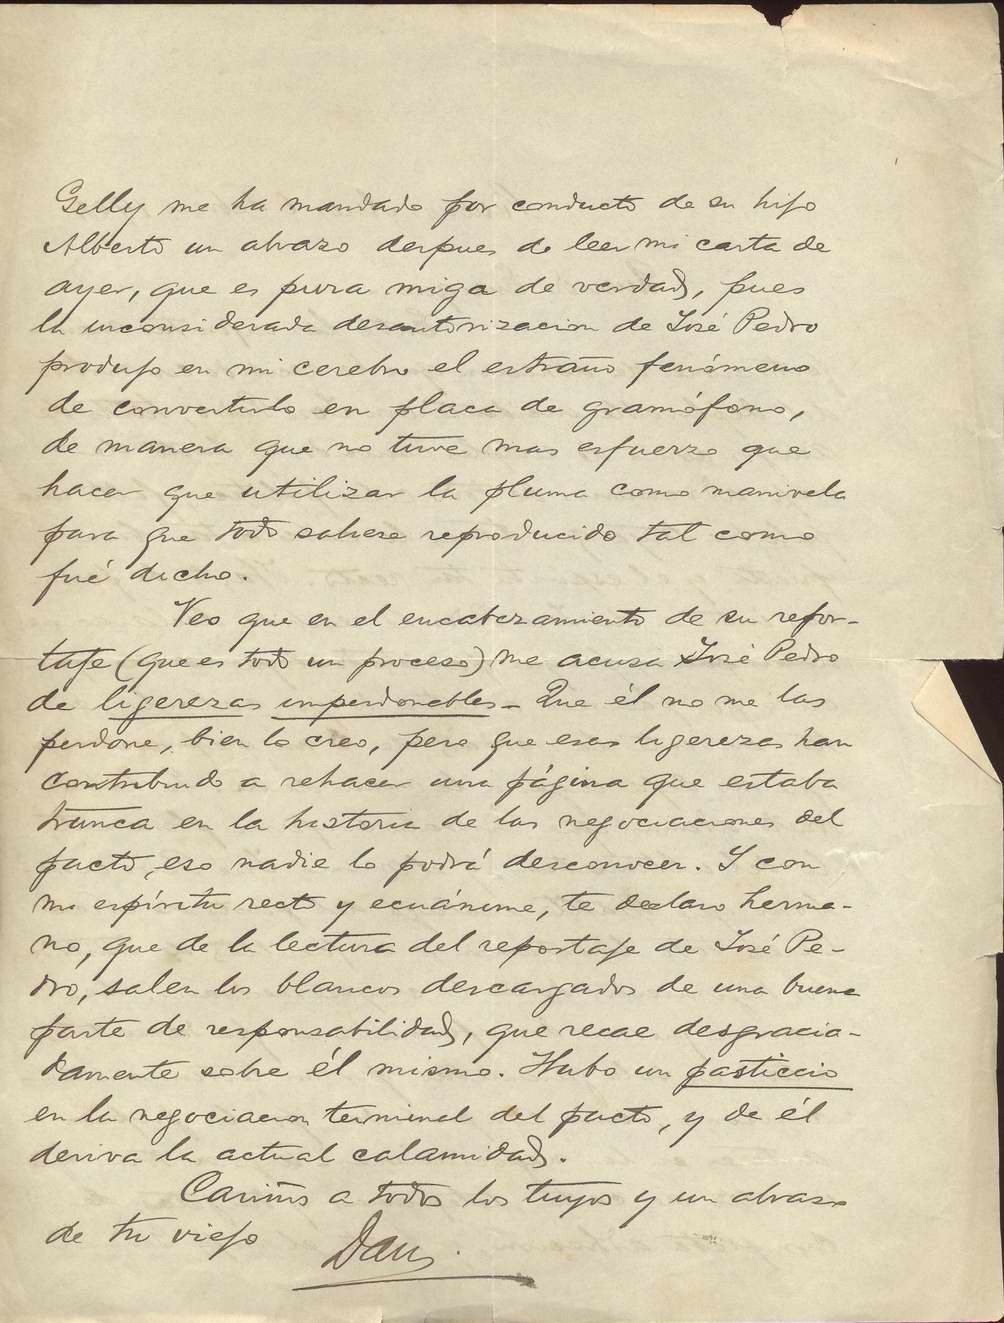 Gelly me ha mandado por conducto de su hijo
Alberto un abrazo despues de leer mi carta de
ayer, que es pura miga de verdad, pues
la inconsiderada desautorizacion de José Pedro
produjo en mi cerebro el estraño fenómeno
de convertirlo en placa de gramófono,
de manera que no tuve mas esfuerzo que
hacer que utilizar la pluma como manivela
para que todo saliese reproducido tal como
fué dicho.
Veo que en el encabezamiento de su repor-
taje (que es todo un proceso) me acusa José Pedro
de ligerezas imperdonables - Que él no me las
perdone, bien lo creo, pero que esas ligerezas han
contribuido a rehacer una página que estaba
trunca en la historia de las negociaciones del
pacto, eso nadie lo podrá desconocer. Y con
mi espíritu recto y ecuánime, te declaro herma-
no, que de la lectura del reportaje de José Pe-
dro, salen los blancos descargados de una buena
parte de responsabilidad, que recae desgracia-
damente sobre él mismo. Hubo un pasticcio
en la negociacion terminal del pacto, y de él
deriva la actual calamidad.
Cariños a todos los tuyos y un abrazo
de tu viejo
Dan